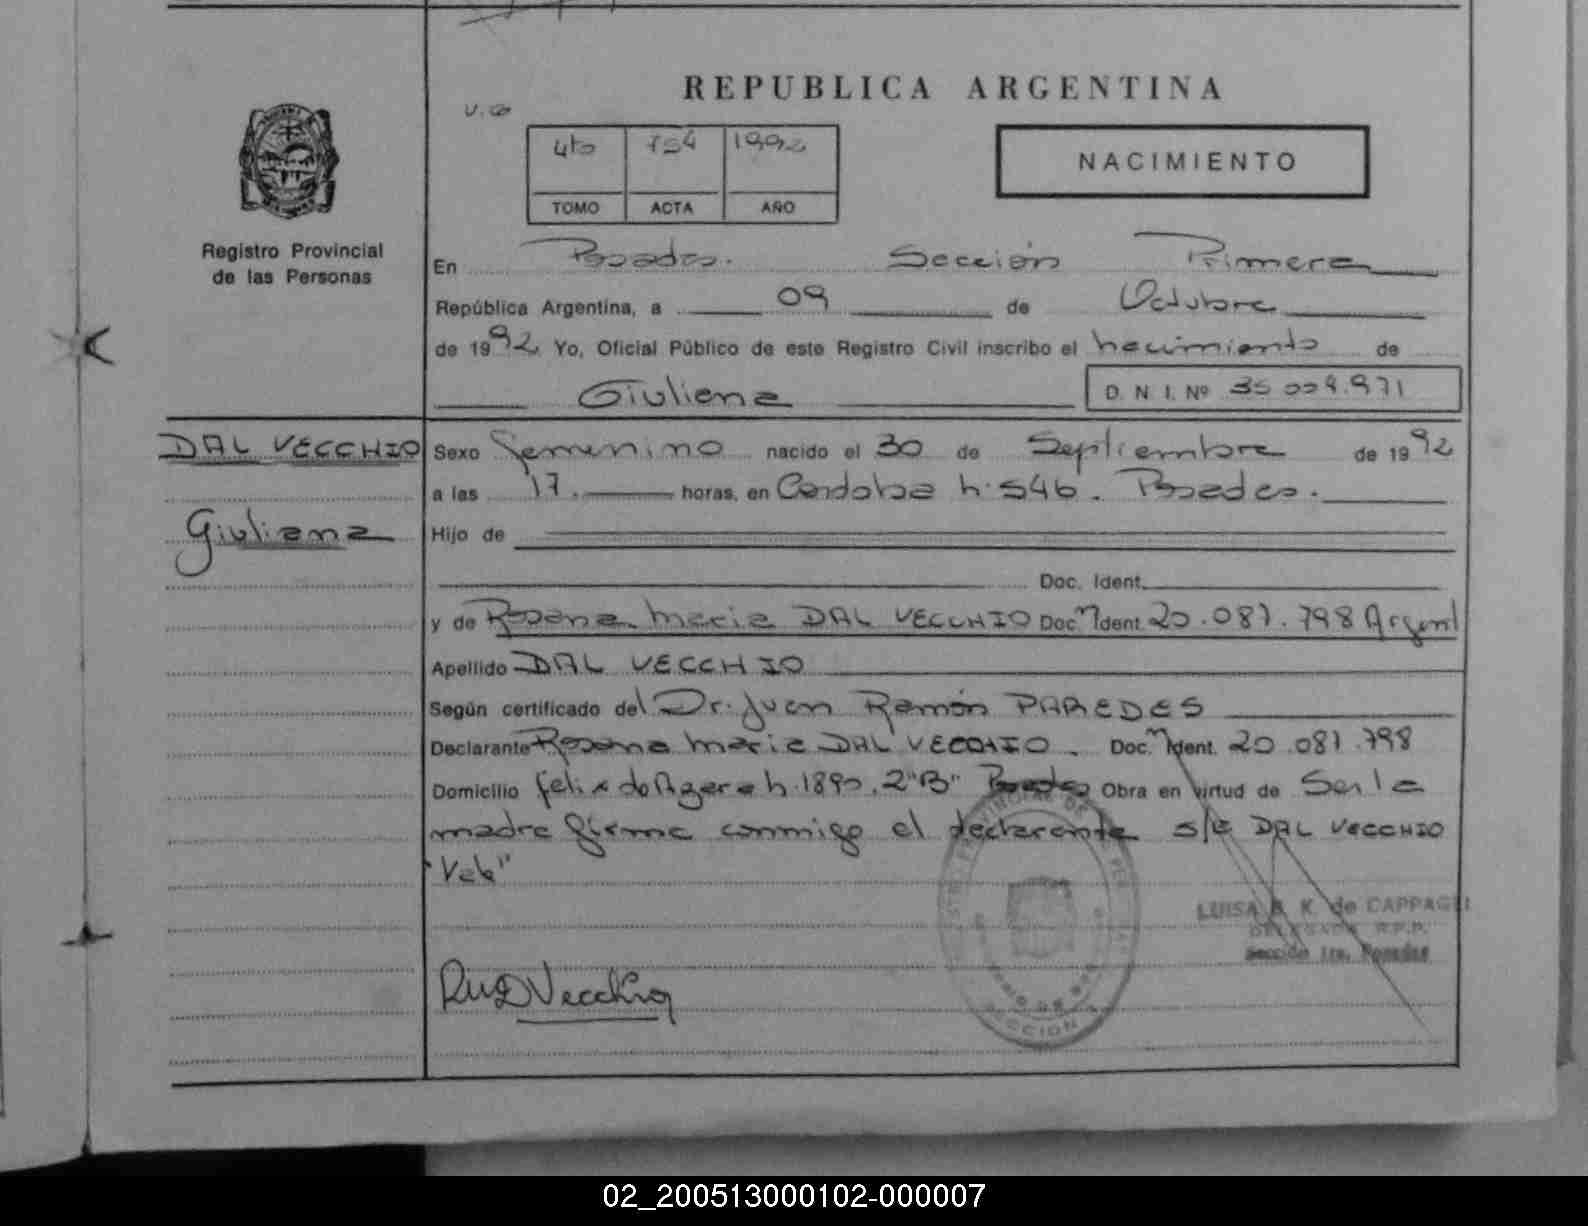 REPUBLICA ARGENTINA
4to 754 1992
NACIMIENTO
TOMO ACTA AÑO
Registro Provincial
de las Personas
En Posadas. Sección Primera
República Argentina, a 09 de Octubre
de 1992 Yo, Oficial Público de este Registro Civil inscribo el nacimiento de
Giuliana D. N. I. Nº 35.009.971
DAL VECCHIO
Giuliana
Sexo femenino nacido el 30 de Septiembre de 1992
a las 17. horas, en Cordoba n. 546. Posadas.
Hijo de
Doc. Ident.
y de Rosana Maria DAL VECCHIO Doc. n Ident. 20.081.798 Argent
Apellido DAL VECCHIO
Según certificado del Dr. Juan Ramón PAREDES
Declarante Rosana Maria DAL VECCHIO. Doc. n Ident. 20.081.798
Domicilio Felix de Azara n. 1890. 2"B" Posadas Obra en virtud de Ser la
madre firma conmigo el declarante s/e DAL VECCHIO
"Vale"
LUISA K. de CAPPAGLI
DELEGADA R.P.P.
Sección 1ra. Posadas
SECCION
02_200513000102-000007